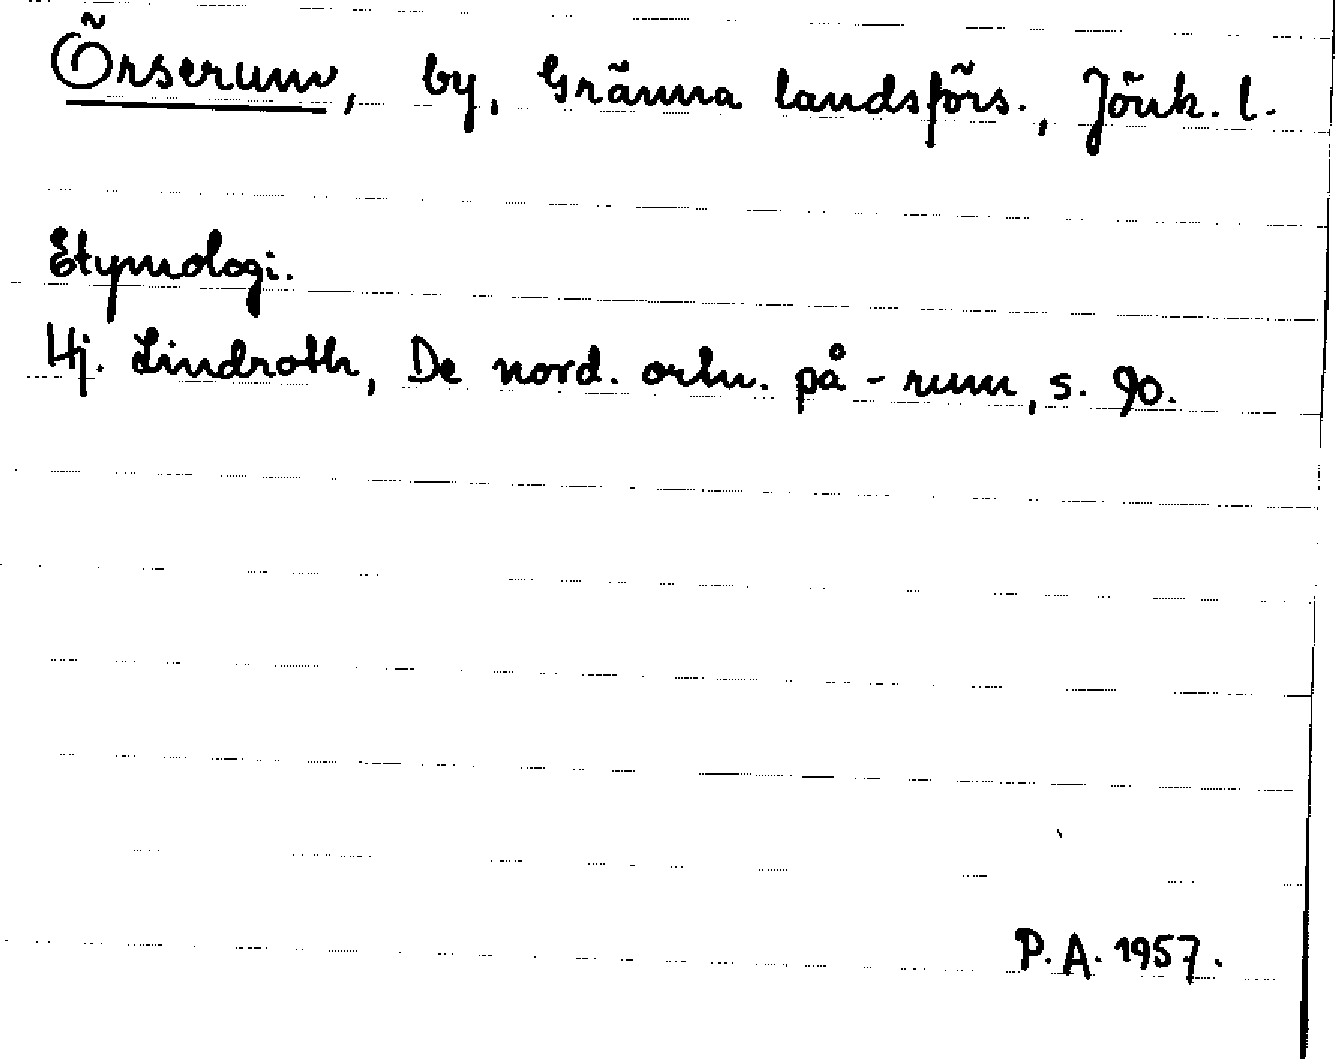 Örserum, by, Gränna landsförs., Jönk. l.
Etymologi.
Hj. Lindroth, De nord. ortn. på -rum, s. 90.
P.A. 1957.